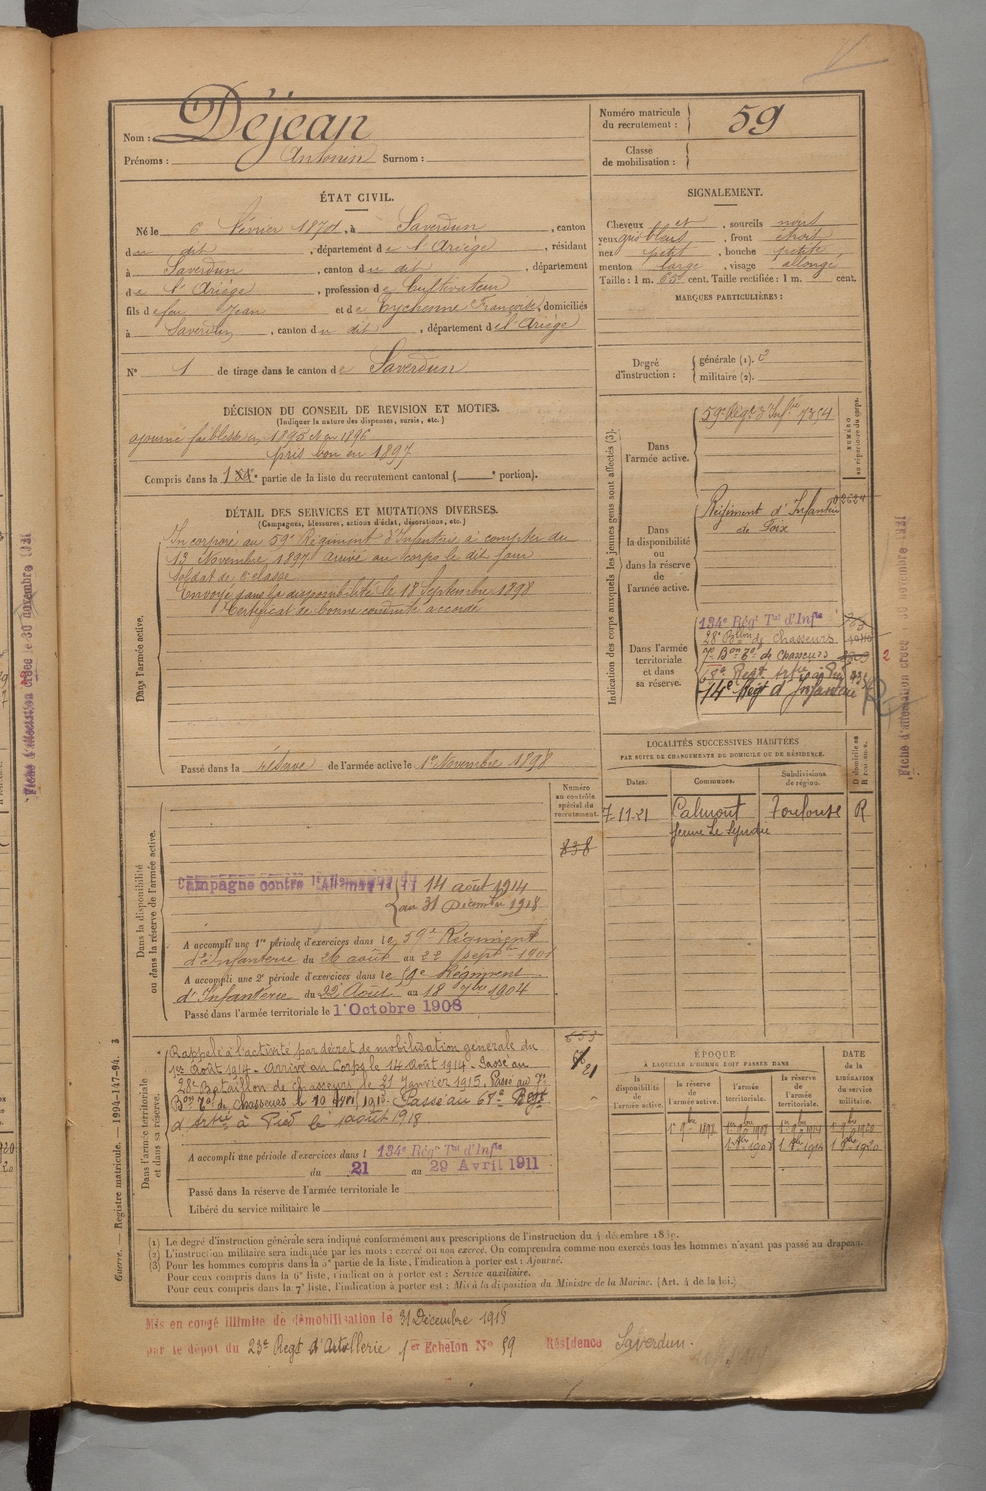 Nom : Déjean
Prénoms : Antonin Surnom :
Numéro matricule du recrutement : 59
Classe de mobilisation :
ÉTAT CIVIL.
Né le 6 février 1874, à Saverdun, canton
du dit, département de l'Ariège, résidant
à Saverdun, canton du dit, département
de l'Ariège, profession de Cultivateur
fils de feu Jean et de Eychenne Françoise, domiciliés
à Saverdun, canton du dit, département de l'Ariège
N° 1 de tirage dans le canton de Saverdun
SIGNALEMENT.
Cheveux et, sourcils noirs
yeux gris bleus, front étroit
nez petit, bouche petite
menton large, visage allongé
Taille : 1 m. 65 cent. Taille rectifiée : 1 m. cent.
MARQUES PARTICULIÈRES :
Degré d'instruction : générale (1). 2
militaire (2).
DÉCISION DU CONSEIL DE REVISION ET MOTIFS.
(Indiquer la nature des dispenses, sursis, etc.)
ajourné faiblesse en 1895 et en 1896
pris bon en 1897
Compris dans la 1re partie de la liste du recrutement cantonal ( e portion).
DÉTAIL DES SERVICES ET MUTATIONS DIVERSES.
(Campagnes, blessures, actions d'éclat, décorations, etc.)
Dans l'armée active.
Incorporé au 59e Régiment d'Infanterie à compter du
13 Novembre 1897 arrivé au corps le dit jour
soldat de 2e classe
Envoyé dans la disponibilité le 18 Septembre 1898
Certificat de bonne conduite accordé
Passé dans la réserve de l'armée active le 1er Novembre 1898
Indication des corps auxquels les jeunes gens sont affectés (3).
NUMÉRO au répertoire du corps.
Dans l'armée active.
59e Régt d'Infie 7354
Dans la disponibilité ou dans la réserve de l'armée active.
Régiment d'Infanterie
de Foix
Dans l'armée territoriale et dans sa réserve.
134e Régt Tal d'Infie
28e Bllon de Chasseurs
7e Bon Tal de Chasseurs
68e Régt Artie à Pied
14e Régt d'Infanterie
2
LOCALITÉS SUCCESSIVES HABITÉES
PAR SUITE DE CHANGEMENTS DE DOMICILE OU DE RÉSIDENCE.
Dates. Communes. Subdivisions de région. D domicile ou R résidence.
7-11-21 Calmont Toulouse R
ferme Le Syndic
Dans la disponibilité ou dans la réserve de l'armée active.
Numéro au contrôle spécial du recrutement.
838
Campagne contre l'Allemagne 14 août 1914
au 31 Décembre 1918
A accompli une 1re période d'exercices dans le 59e Régiment
d'Infanterie du 26 août au 22 sept 1901
A accompli une 2e période d'exercices dans le 59e Régiment
d'Infanterie du 22 Août au 18 7bre 1904
Passé dans l'armée territoriale le 1er Octobre 1908
Dans l'armée territoriale et dans sa réserve.
Rappelé à l'activité par décret de mobilisation générale du
1er Août 1914. Arrivé au Corps le 14 Août 1914. Passé au
28e Bataillon de Chasseurs le 21 Janvier 1915. Passé au 7e
Bon Tal de Chasseurs le 10 avril 1916. Passé au 68e Régt
d'Artie à Pied le 1 août 1918
A accompli une période d'exercices dans l 134e Régt Tal d'Infie
du 21 au 29 Avril 1911
Passé dans la réserve de l'armée territoriale le
Libéré du service militaire le
ÉPOQUE
À LAQUELLE L'HOMME DOIT PASSER DANS
la disponibilité de l'armée active. la réserve de l'armée active. l'armée territoriale. la réserve de l'armée territoriale.
DATE de la LIBÉRATION du service militaire.
1er 9bre 1898 1er 9bre 1908 1er 9bre 1914 1er 9bre 1920
1er 8bre 1908 1er 8bre 1914 1er 8bre 1920
(1) Le degré d'instruction générale sera indiqué conformément aux prescriptions de l'instruction du 4 décembre 1889.
(2) L'instruction militaire sera indiquée par les mots : exercé ou non exercé. On comprendra comme non exercés tous les hommes n'ayant pas passé au drapeau.
(3) Pour les hommes compris dans la 5e partie de la liste, l'indication à porter est : Ajourné.
Pour ceux compris dans la 6e liste, l'indication à porter est : Service auxiliaire.
Pour ceux compris dans la 7e liste, l'indication à porter est : Mis à la disposition du Ministre de la Marine. (Art. 4 de la loi.)
Mis en congé illimité de démobilisation le 31 Décembre 1918
par le dépôt du 23e Régt d'Artillerie 1er Echelon N° 59 Résidence Saverdun.
Guerre. — Registre matricule. — 1994-147-94. 3
Fiche d'affectation créée le 30 novembre 1921
Fiche d'affectation créée 30 novembre 1921